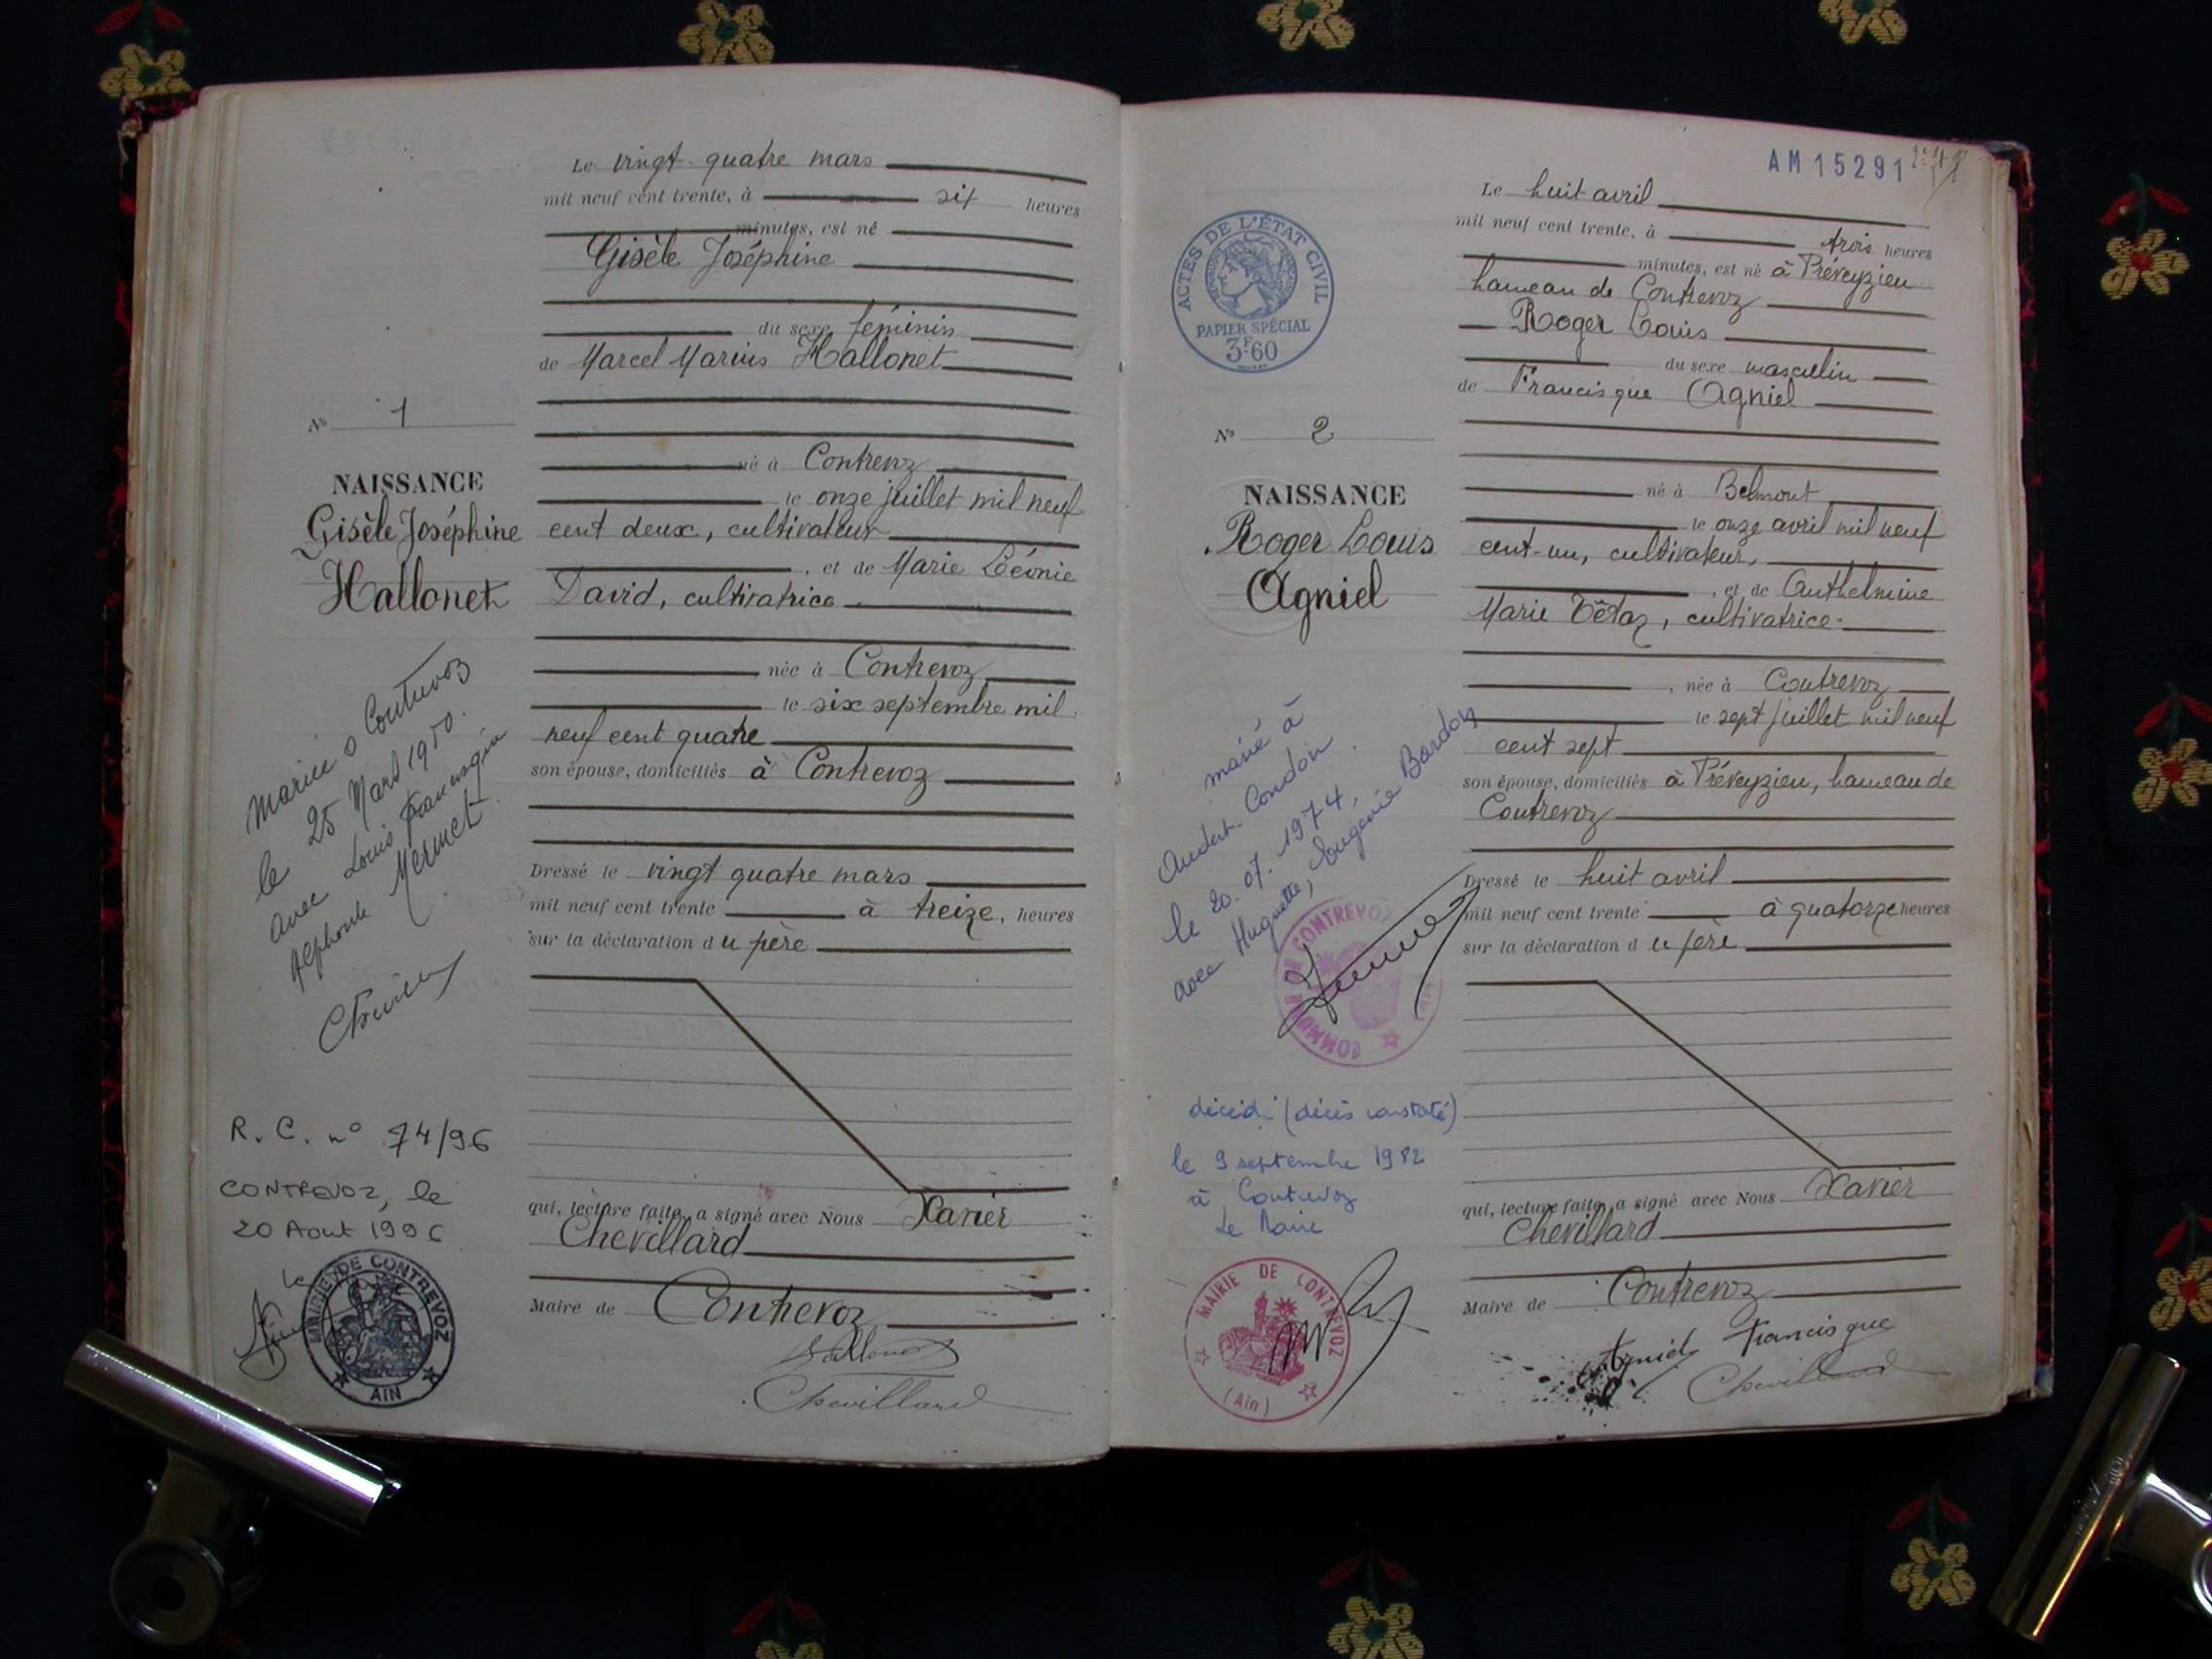 Le vingt-quatre mars
mil neuf cent trente, à six heures
minutes, est né
Gisèle Joséphine
du sexe féminin
de Marcel Marius Hallonet
né à Contrevoz
le onze juillet mil neuf
cent deux, cultivateur
, et de Marie Léonie
David, cultivatrice
née à Contrevoz
le six septembre mil
neuf cent quatre
son épouse, domiciliés à Contrevoz
Dressé le vingt quatre mars
mil neuf cent trente à treize, heures
sur la déclaration du père
qui, lecture faite, a signé avec Nous Xavier
Chevillard
Maire de Contrevoz
Hallonet
Chevillard
N° 1
NAISSANCE
Gisèle Joséphine
Hallonet
Mariée à Contrevoz
le 25 Mars 1950.
avec Louis
Alphonse Mermet
R. C. n° 74/96
CONTREVOZ, le
20 Aout 1996
le
MAIRIE DE CONTREVOZ
AIN
AM 15291
Le huit avril
mil neuf cent trente, à trois heures
minutes, est né à Préveyzieu
hameau de Contrevoz
Roger Louis
du sexe masculin
de Francisque Agniel
né à Belmont
le onze avril mil neuf
cent-un, cultivateur,
, et de Anthelmine
Marie Tétaz, cultivatrice
, née à Contrevoz
le sept juillet mil neuf
cent sept
son épouse, domiciliés à Préveyzieu, hameau de
Contrevoz
Dressé le huit avril
mil neuf cent trente à quatorze heures
sur la déclaration du père
qui, lecture faite, a signé avec Nous Xavier
Chevillard
Maire de Contrevoz
Agniel Francisque
Chevillard
ACTES DE L'ÉTAT CIVIL
PAPIER SPÉCIAL
3F60
N° 2
NAISSANCE
Roger Louis
Agniel
marié à
Andert-Condon
le 20.07.1974,
avec Huguette, Eugénie Bardon
COMMUNE DE CONTREVOZ
AIN
décédé (décès constaté)
le 9 septembre 1982
à Contrevoz
Le Maire
MAIRIE DE CONTREVOZ
(Ain)